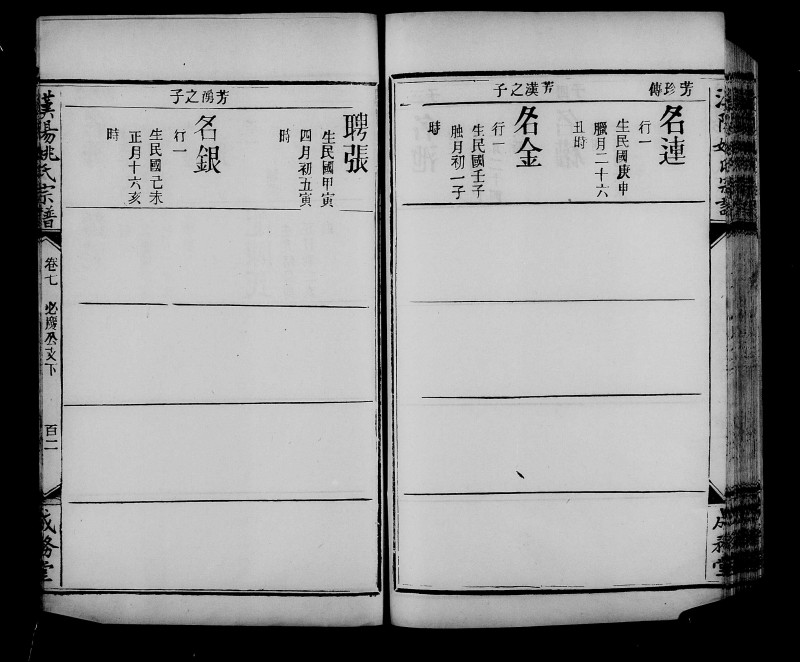 芳珍傳
名連
行一
生民國庚申
臘月二十六
丑時
芳漢之子
名金
行一
生民國壬子
臘月初一子
時
聘張
生民國甲寅
四月初五寅
時
芳湧之子
名銀
行一
生民國己未
正月十六亥
時
漢陽姚氏宗譜
卷七
必慶公支下
百二
成務堂